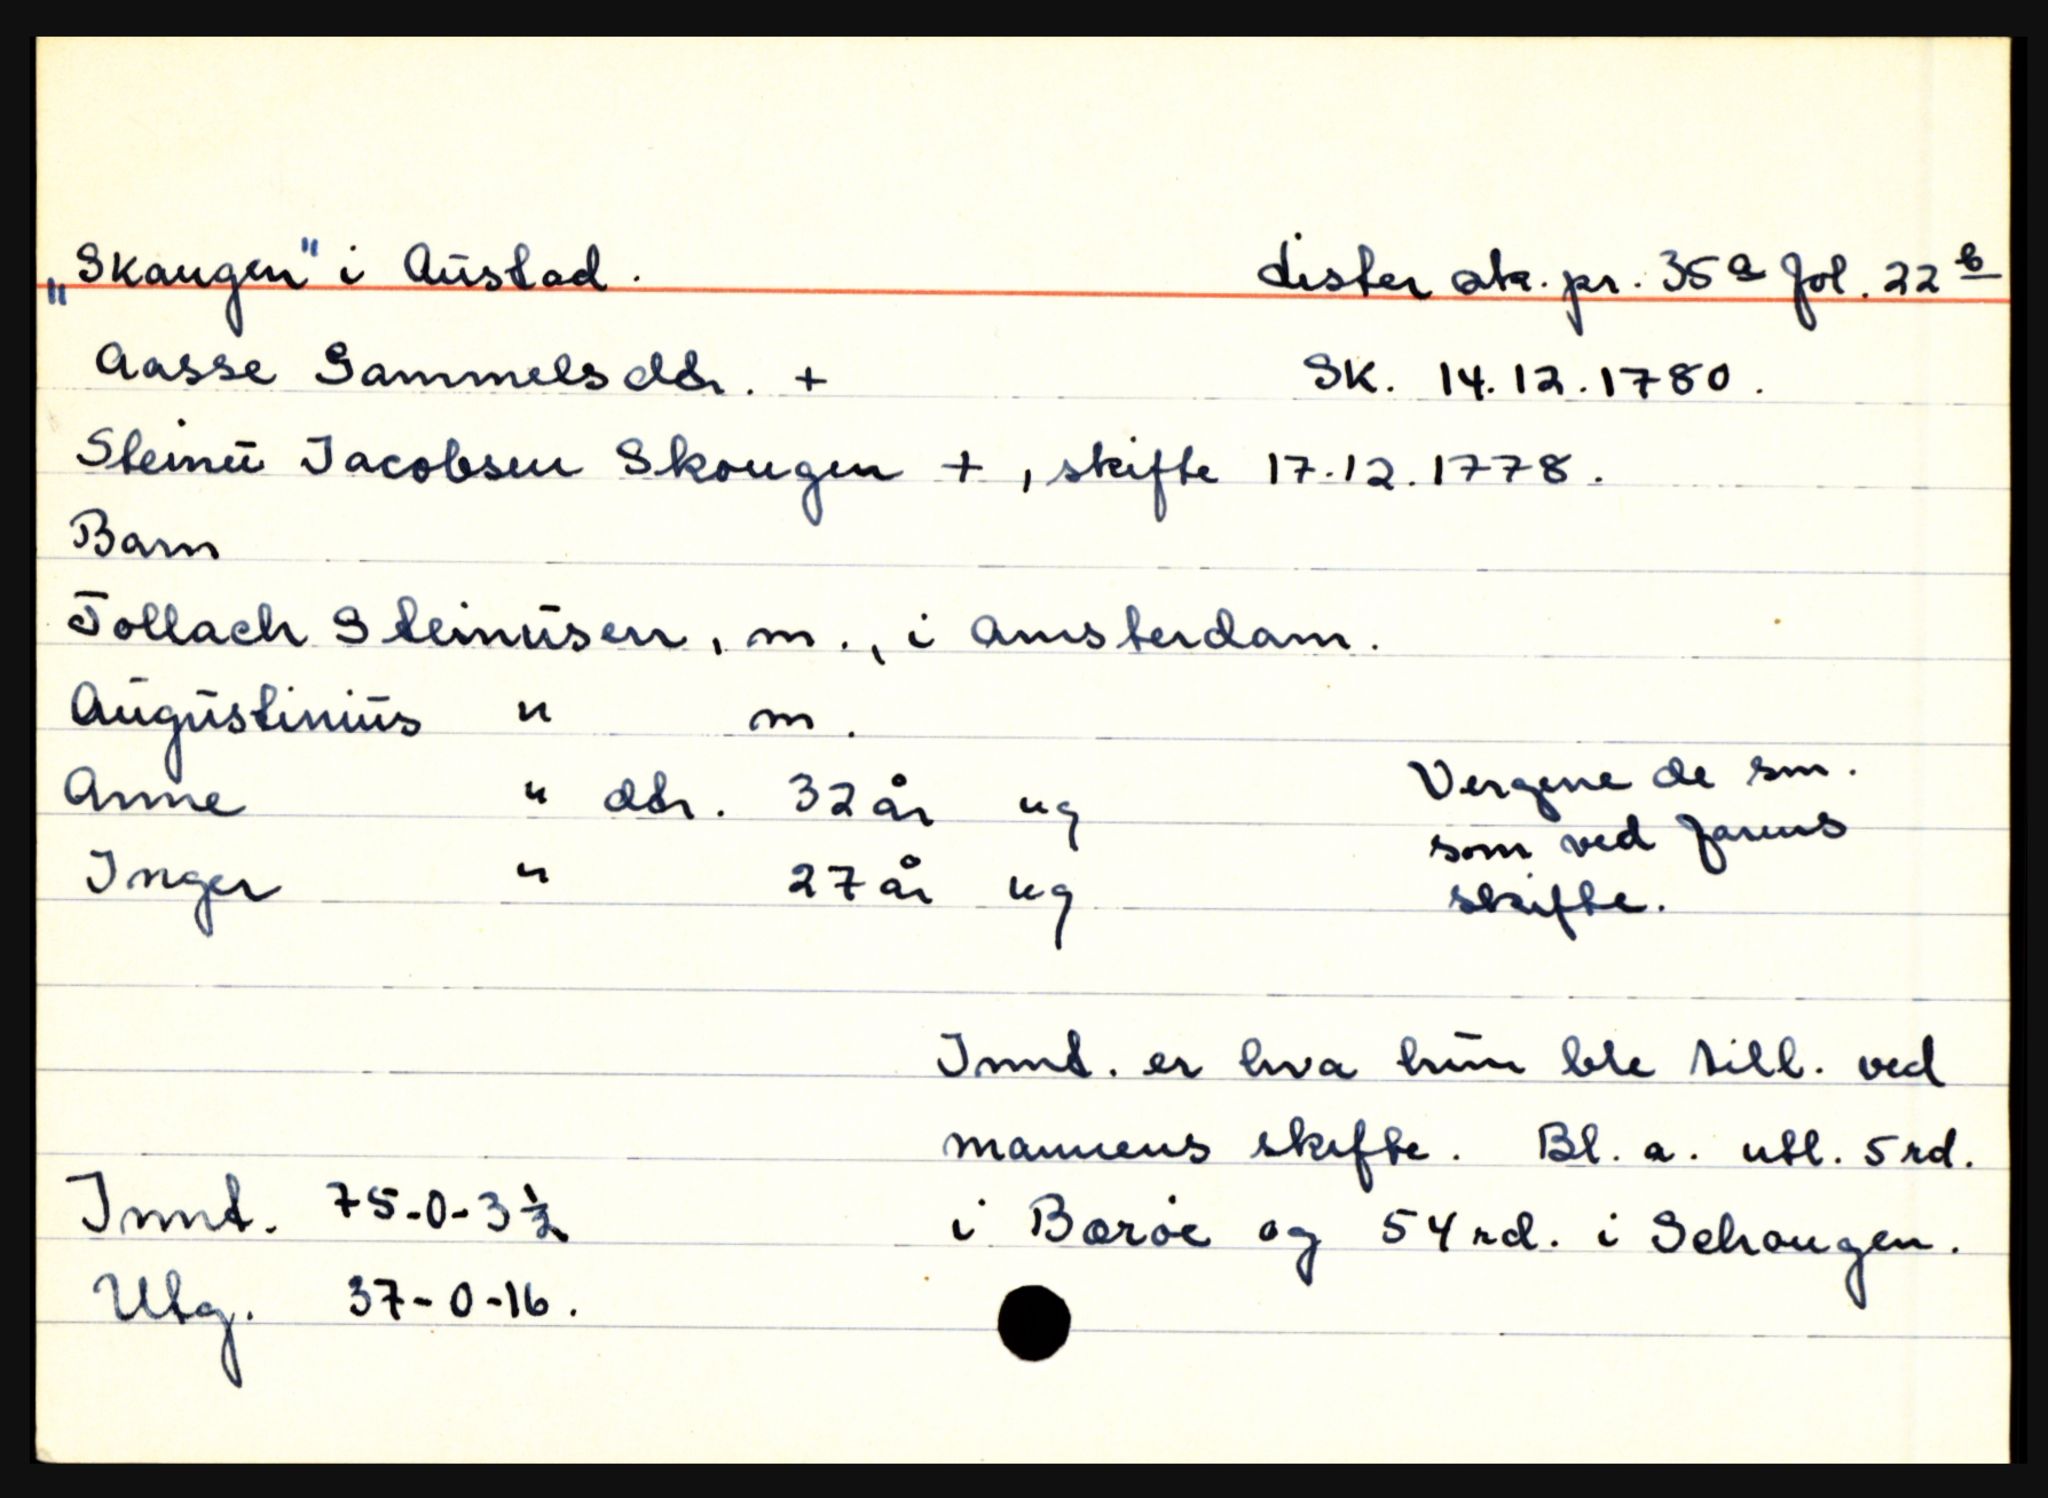 „Skaugen" i Austad. Lister sk. pr. 35a fol. 22b
Aasse Gammelsdtr. + SK. 14.12.1780.
Steinu Jacobsen Skougen +, skifte 17.12.1778.
Barn
Tollach Steinusen, m., i Amsterdam.
Augustinius " m.
Anne " dtr. 32 år ug
Inger " 27 år ug
Vergene de sm.
som ved farens
skifte.
Innt. er hva hun ble till. ved
mannens skifte. Bl. a. utl. 5 rd.
i Borøe og 54 rd. i Schougen.
Innt. 75-0-3½
Utg. 37-0-16.